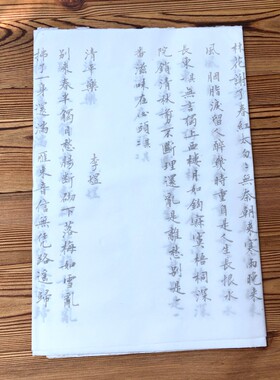 林花謝了春紅太匆々無奈朝來寒雨晚來
風 胭脂淚留人醉幾時重自是人生長恨水
長東 無言獨上西樓月如鉤寂寞梧桐深
院鎖清秋剪不斷理還亂是離愁別是一
番滋味在心頭
清平樂 李煜
別來春半觸目愁腸斷砌下落梅如雪亂
拂了一身還滿 雁來音信無憑路遙歸